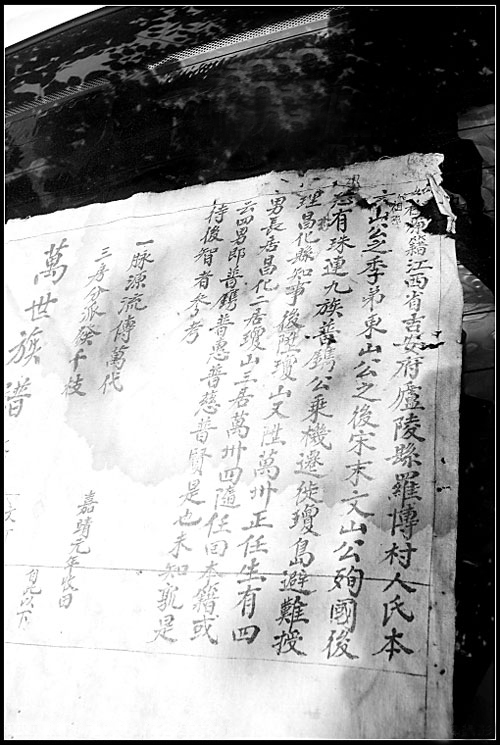 源籍江西省吉安府廬陵縣羅博村人氏本
文山公之季弟東山公之後宋末文山公殉國後
有珠連九族普鐫公乘機遷徙瓊島避難授
理昌化縣知事後陞瓊山又陞萬卅正任生有四
男長居昌化二居瓊山三居萬卅四隨任回本籍或
云四男即普鐫普惠普慈普賢是也未知孰是
待後智者參考
一脉源流傳萬代
三房分派發千枝
嘉靖元年
萬世族譜